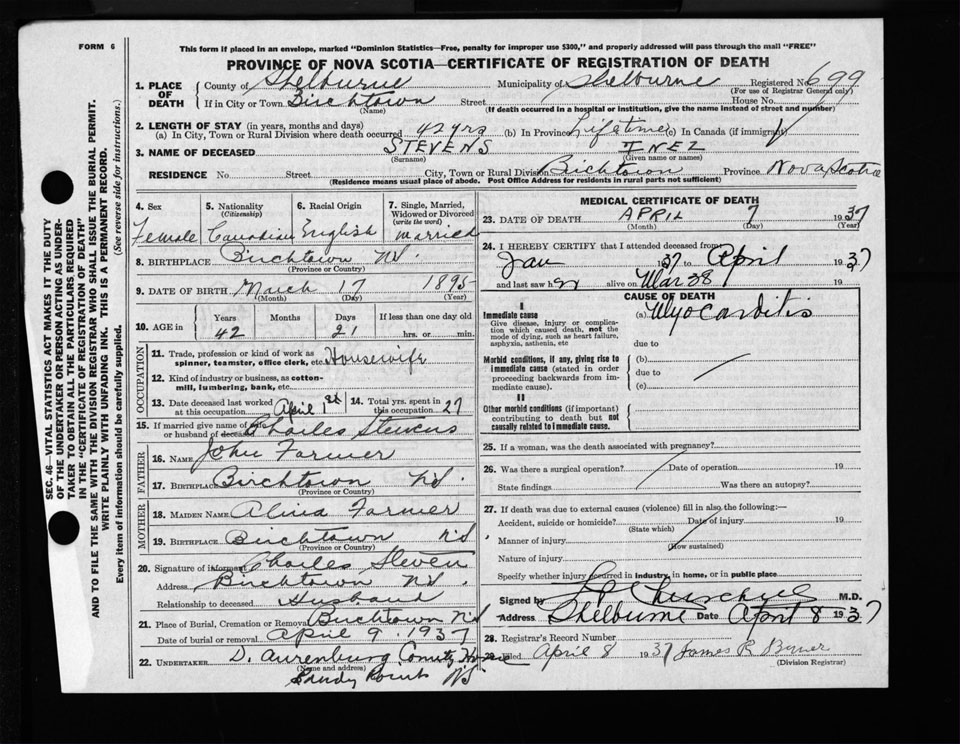 FORM 6
This form if placed in an envelope, marked "Dominion Statistics—Free, penalty for improper use $300," and properly addressed will pass through the mail "FREE"
PROVINCE OF NOVA SCOTIA—CERTIFICATE OF REGISTRATION OF DEATH
1. PLACE OF DEATH
County of Shelburne Municipality of Shelburne Registered No. 699
(For use of Registrar General only)
If in City or Town Birchtown Street House No.
(Name) (If death occurred in a hospital or institution, give the name instead of street and number)
2. LENGTH OF STAY (in years, months and days)
(a) In City, Town or Rural Division where death occurred 42 yrs (b) In Province Lifetime (c) In Canada (if immigrant)
3. NAME OF DECEASED STEVENS INEZ
(Surname) (Given name or names)
RESIDENCE No. Street City, Town or Rural Division Birchtown Province Nova Scotia
(Residence means usual place of abode. Post Office Address for residents in rural parts not sufficient)
4. Sex
Female
5. Nationality
(Citizenship)
Canadian
6. Racial Origin
English
7. Single, Married, Widowed or Divorced
(write the word)
Married
8. BIRTHPLACE Birchtown NS.
(Province or Country)
9. DATE OF BIRTH March 17 1895
(Month) (Day) (Year)
10. AGE in
Years Months Days If less than one day old
42 21 hrs. or min.
OCCUPATION
11. Trade, profession or kind of work as spinner, teamster, office clerk, etc. Housewife
12. Kind of industry or business, as cotton-mill, lumbering, bank, etc.
13. Date deceased last worked at this occupation April 1st
14. Total yrs. spent in this occupation 27
15. If married give name of wife or husband of deceased Charles Stevens
FATHER
16. NAME John Farmer
17. BIRTHPLACE Birchtown NS.
(Province or Country)
MOTHER
18. MAIDEN NAME Farmer
19. BIRTHPLACE Birchtown NS
(Province or Country)
20. Signature of informant Charles Steven
Address Birchtown NS.
Relationship to deceased Husband
21. Place of Burial, Cremation or Removal Birchtown NS
Date of burial or removal April 9. 1937
22. UNDERTAKER D.
(Name and address)
Sandy Point NS.
MEDICAL CERTIFICATE OF DEATH
23. DATE OF DEATH APRIL 7 1937
(Month) (Day) (Year)
24. I HEREBY CERTIFY that I attended deceased from
Jan 1937 to April 1937
and last saw her alive on Mar 38 19
CAUSE OF DEATH
I
Immediate cause (a) Myocarditis
Give disease, injury or complication which caused death, not the mode of dying, such as heart failure, asphyxia, asthenia, etc
due to
Morbid conditions, if any, giving rise to immediate cause (stated in order proceeding backwards from immediate cause).
(b)
due to
(c)
II
Other morbid conditions (if important) contributing to death but not causally related to immediate cause.
25. If a woman, was the death associated with pregnancy?
26. Was there a surgical operation? Date of operation 19
State findings Was there an autopsy?
27. If death was due to external causes (violence) fill in also the following:—
Accident, suicide or homicide? Date of injury 19
(State which)
Manner of injury
(How sustained)
Nature of injury
Specify whether injury occurred in industry, in home, or in public place
Signed by M.D.
Address Shelburne Date April 8 1937
28. Registrar's Record Number
29. Filed April 8 1937 James R
(Division Registrar)
SEC. 46—VITAL STATISTICS ACT MAKES IT THE DUTY
OF THE UNDERTAKER OR PERSON ACTING AS UNDER-
TAKER TO OBTAIN ALL THE PARTICULARS REQUIRED
IN THE "CERTIFICATE OF REGISTRATION OF DEATH"
AND TO FILE THE SAME WITH THE DIVISION REGISTRAR WHO SHALL ISSUE THE BURIAL PERMIT.
WRITE PLAINLY WITH UNFADING INK. THIS IS A PERMANENT RECORD.
Every item of information should be carefully supplied. (See reverse side for instructions.)